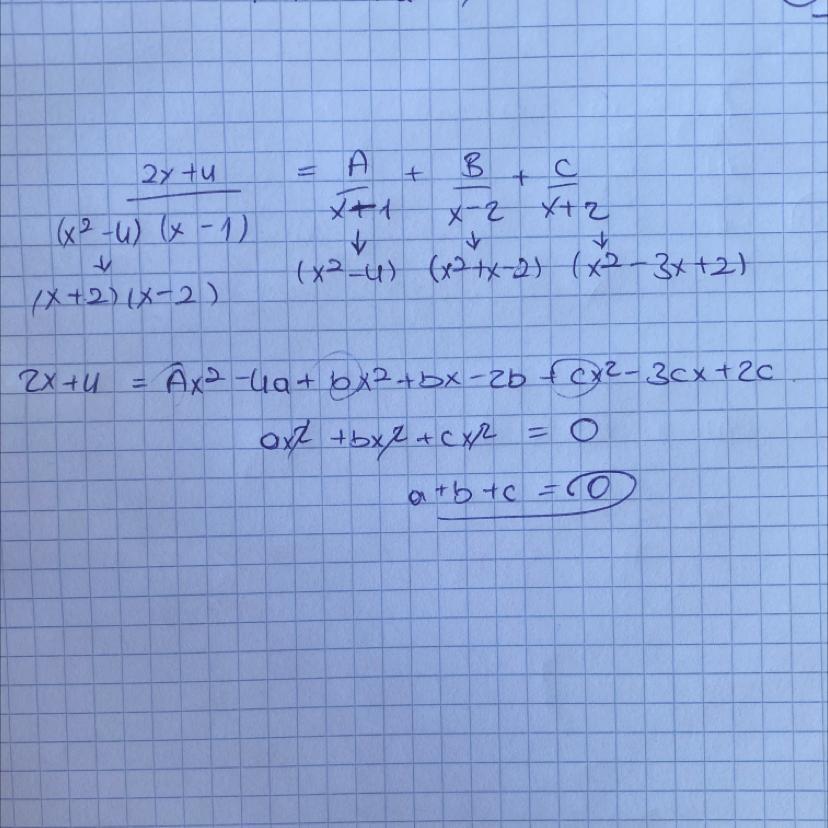 2x+4 = A + B + C
(x²-4) (x-1) x-1 x-2 x+2
↓ ↓ ↓ ↓
(x+2)(x-2) (x²-4) (x²+x-2) (x²-3x+2)
2x+4 = Ax²-4a+bx²+bx-2b+cx²-3cx+2c
ax²+bx²+cx² = 0
a+b+c = 0